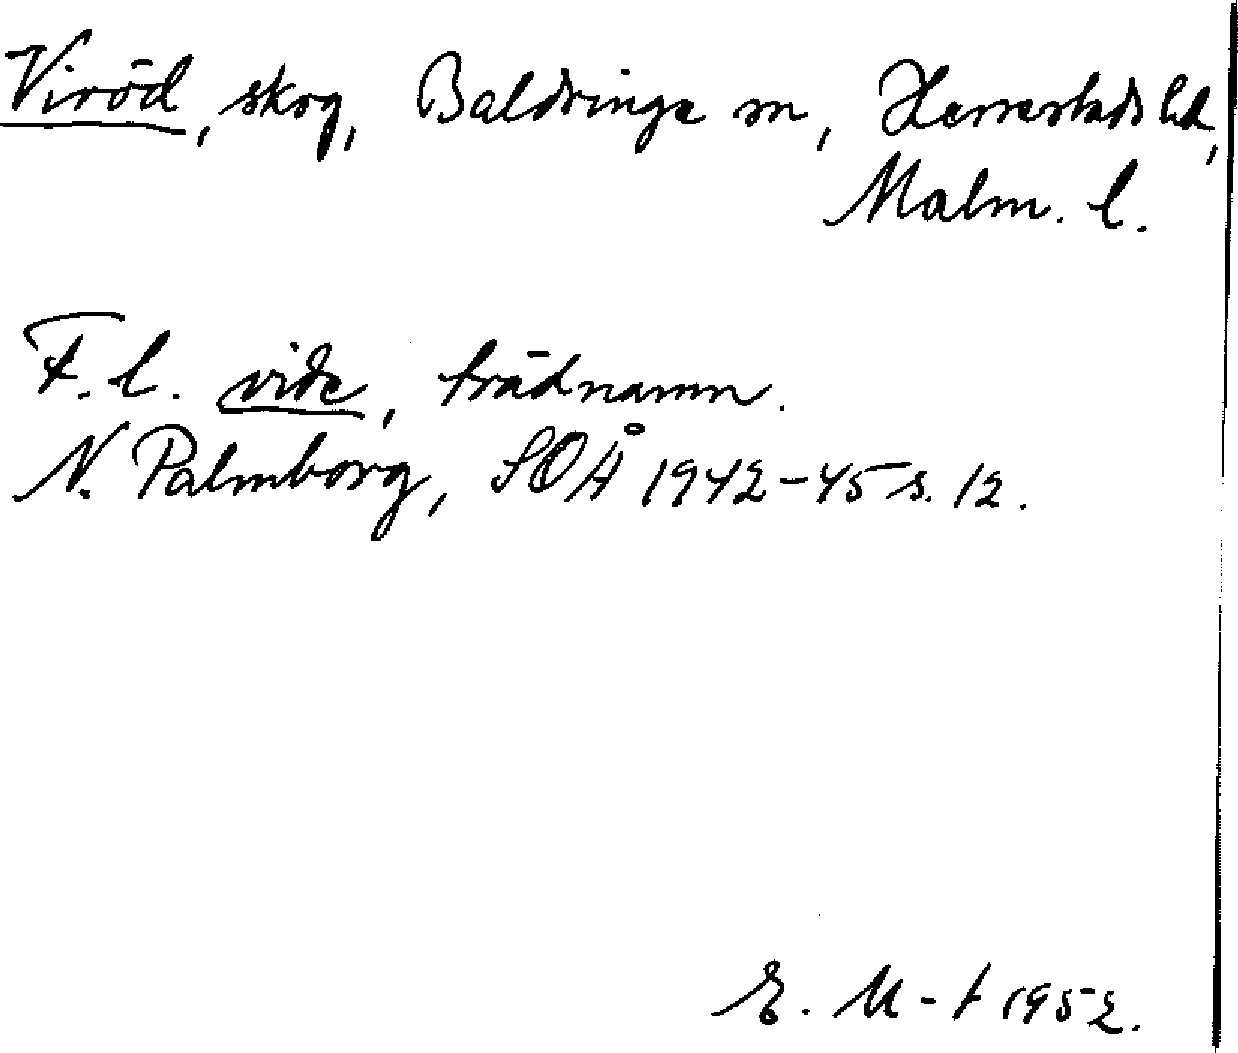 Viröd, skog, Baldringe sn, Herrestads hd,
Malm. l.
F. l. vide, trädnamn.
N. Palmborg, SOÅ 1942-45 s. 12.
E. M-t 1952.